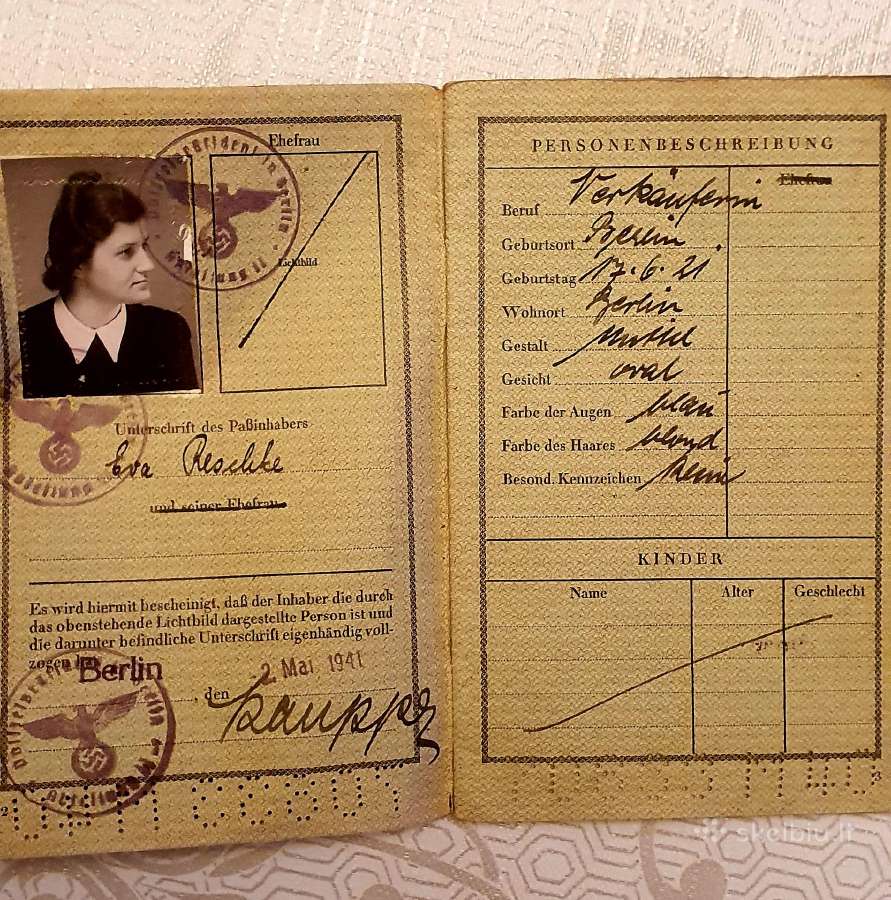 Ehefrau
Lichtbild
Polizeipräsident in Berlin
Abteilung II
Unterschrift des Paßinhabers
Eva Reschke
und seiner Ehefrau
Es wird hiermit bescheinigt, daß der Inhaber die durch
das obenstehende Lichtbild dargestellte Person ist und
die darunter befindliche Unterschrift eigenhändig voll-
zogen hat.
Berlin, den 2. Mai 1941
2
PERSONENBESCHREIBUNG
Ehefrau
Beruf Verkäuferin
Geburtsort Berlin
Geburtstag 17.6.21
Wohnort Berlin
Gestalt Mittel
Gesicht oval
Farbe der Augen blau
Farbe des Haares blond
Besond. Kennzeichen Keine
KINDER
Name Alter Geschlecht
3
skelbiu.lt